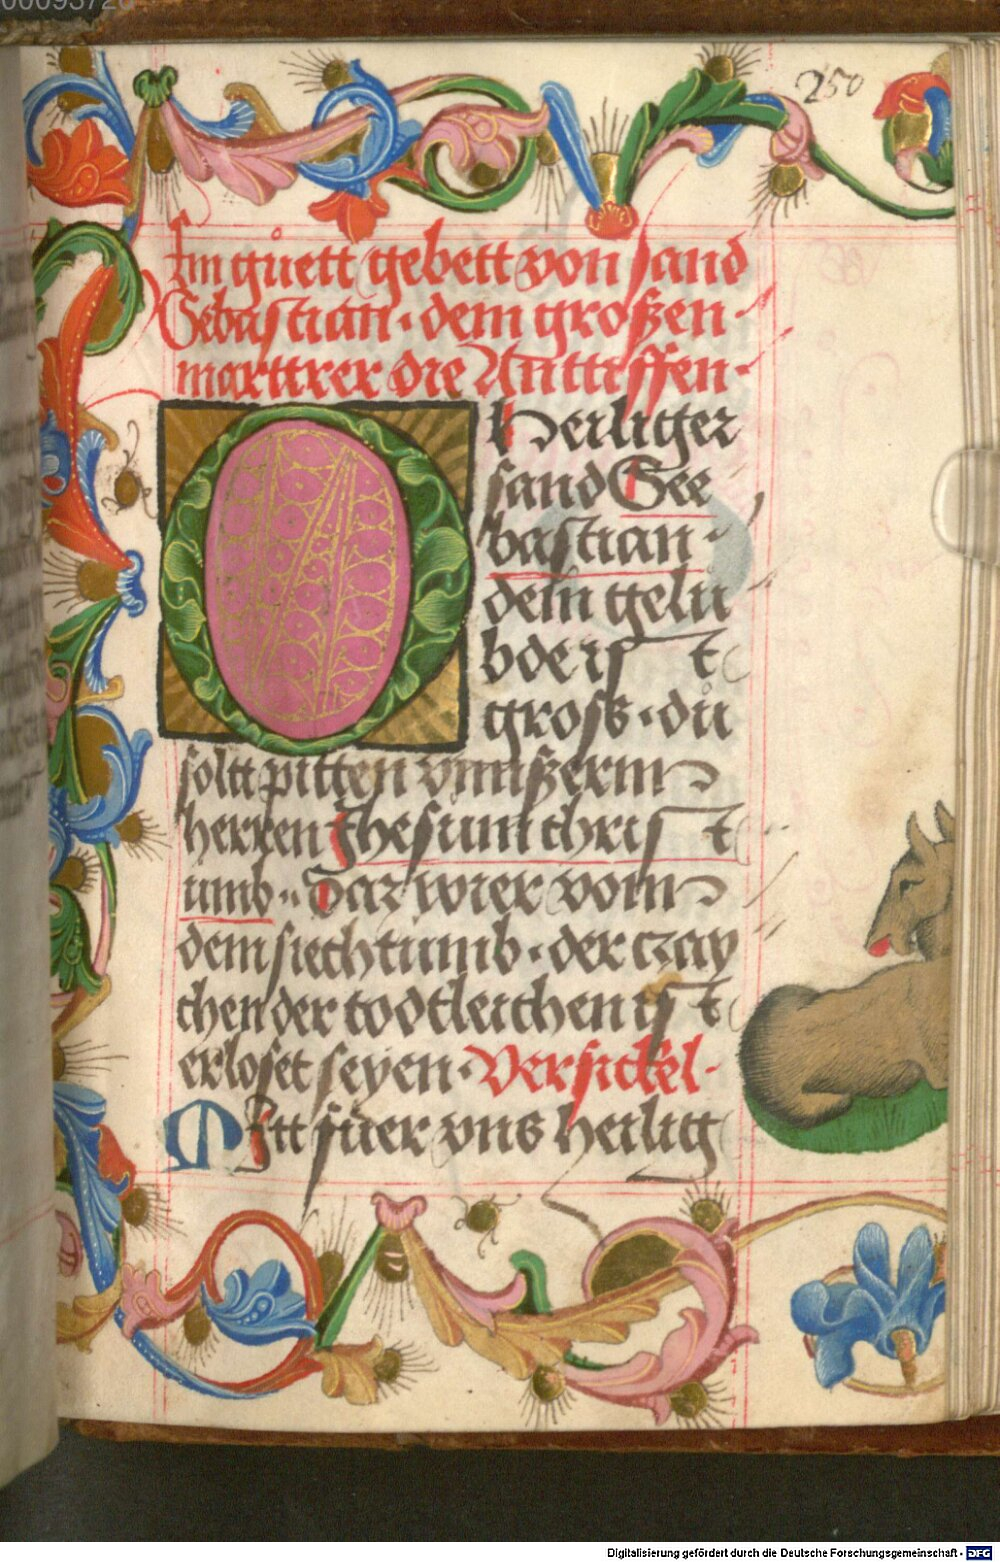 00093728
250
Ein guett gebett von sand
Sebastian · dem großen ·
marttrer die Anttiffen ·
O heiliger
sand See
bastian ·
dein gelu
bde ist
gross · du
soltt pitten vnnßerm
herren Jhesum christ
umb ·· Daz wier vom
dem siechtumb · der czay
chen der todtleichen ist
erloset seyen · Versickel ·
Pitt fuer vns heilig
Digitalisierung gefördert durch die Deutsche Forschungsgemeinschaft - DFG